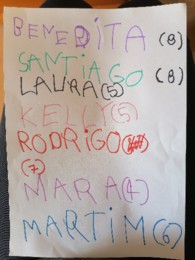 BENEDITA (8)
SANTIAGO (8)
LAURA (5)
KELLY (5)
RODRIGO
(7)
MARA (4)
MARTIM (6)